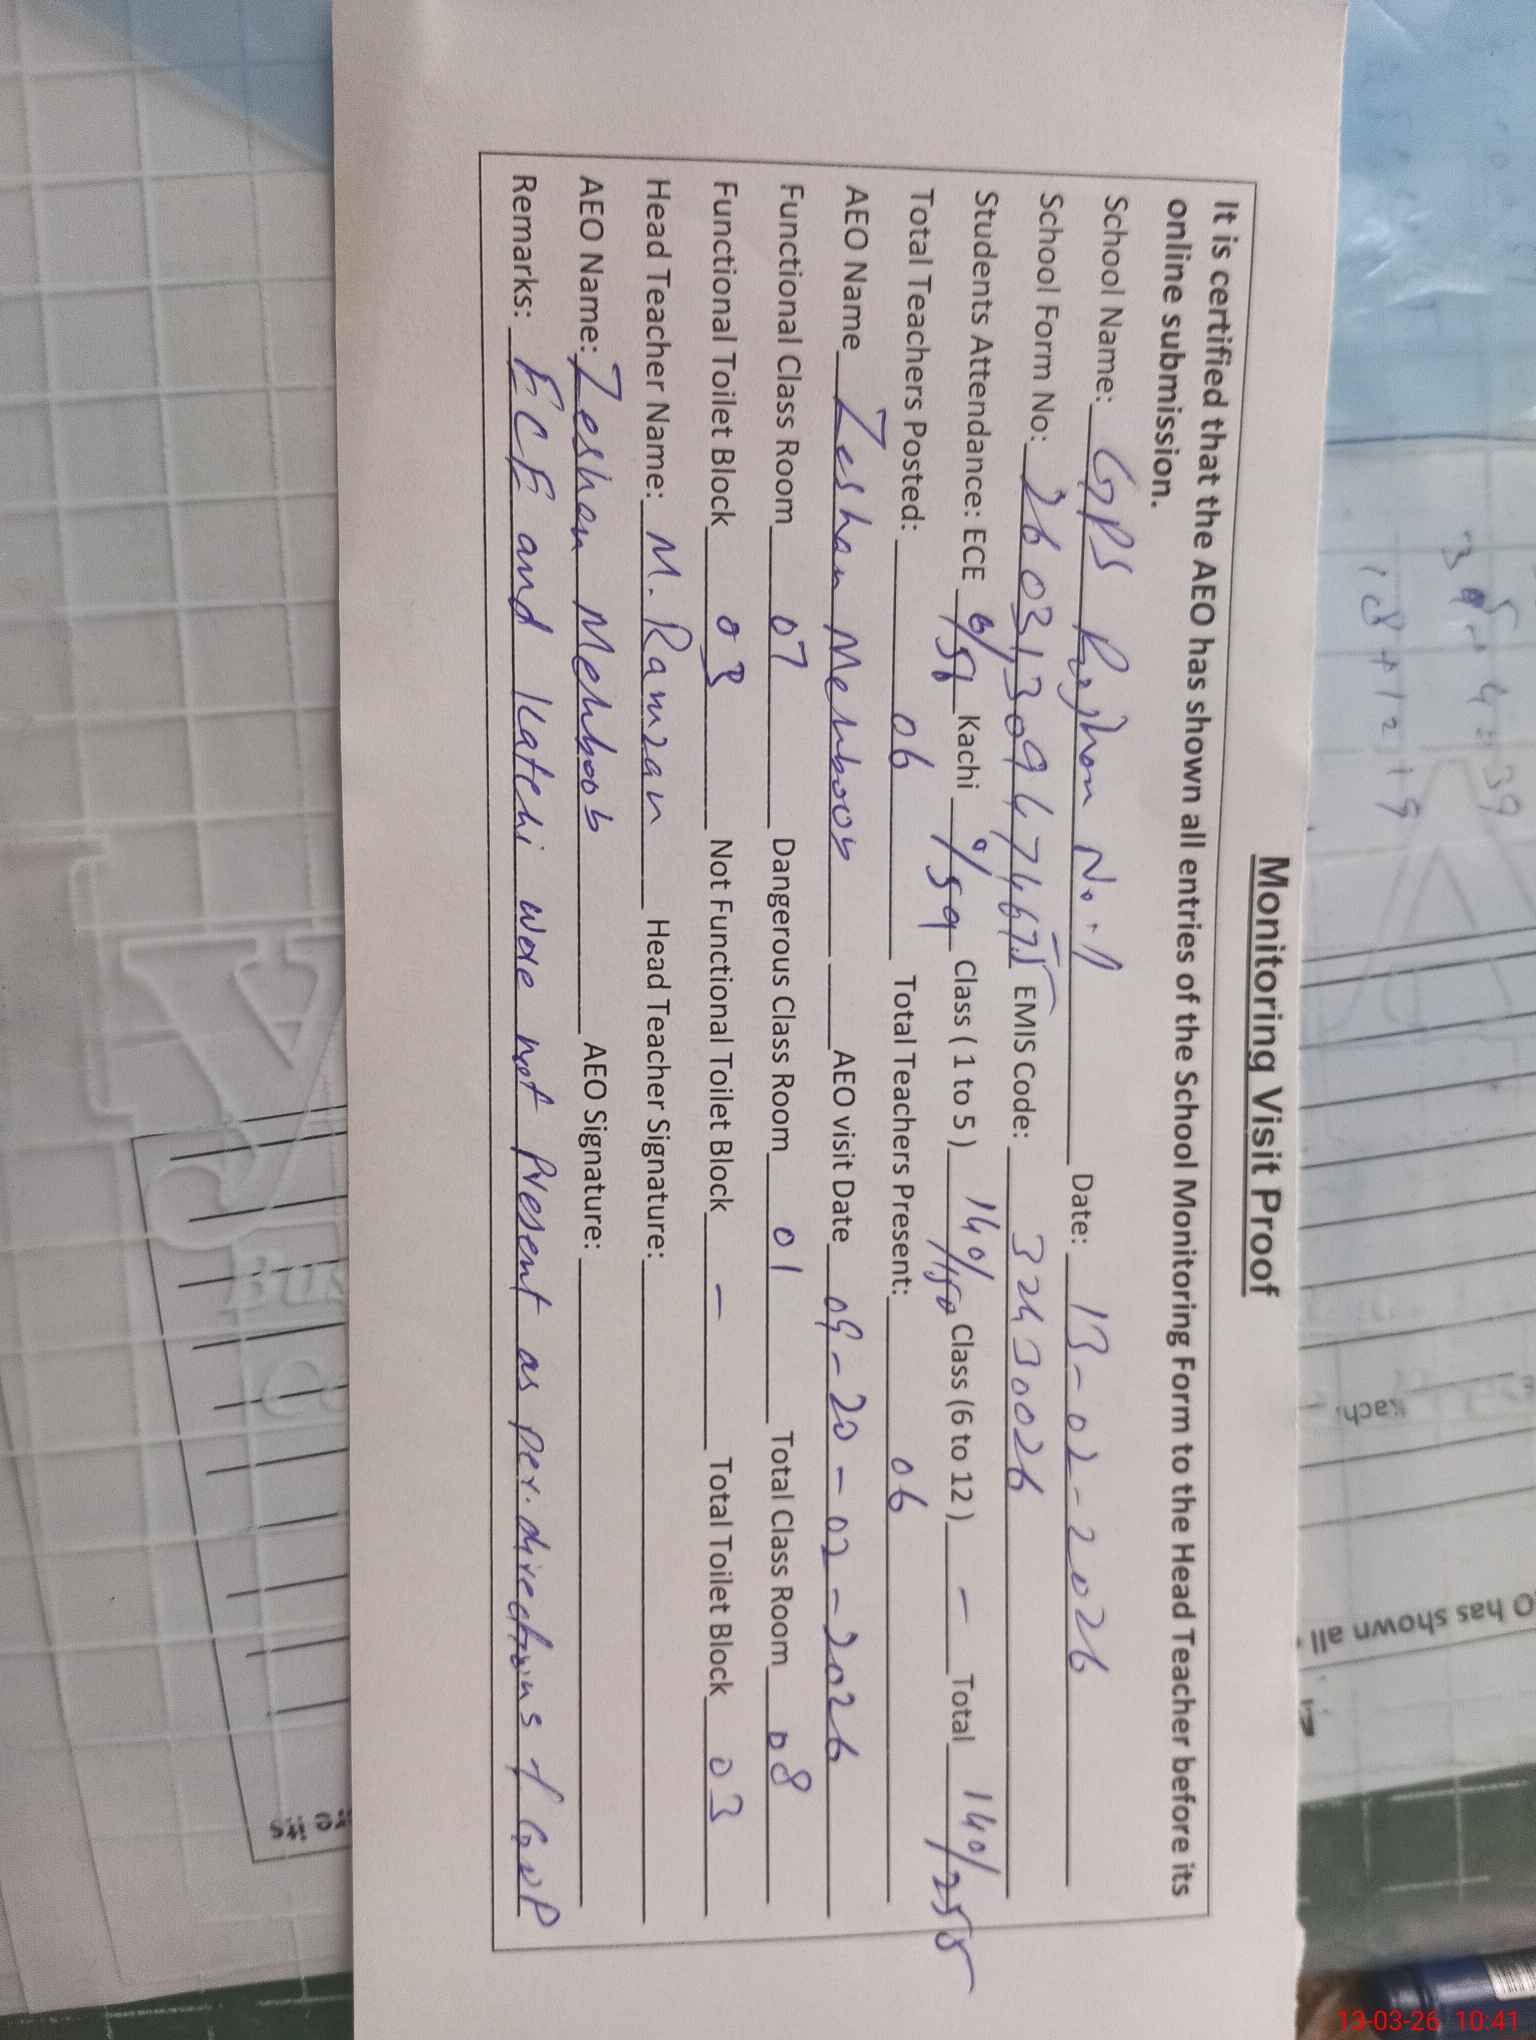 Monitoring Visit Proof
It is certified that the AEO has shown all entries of the School Monitoring Form to the Head Teacher before its
online submission.
School Name: GPS No. 1 Date: 13-02-2026
School Form No: EMIS Code: 32430026
Students Attendance: ECE 0/56 Kachi 0/59 Class ( 1 to 5 ) 140/150 Class (6 to 12 ) — Total 140/255
Total Teachers Posted: 06 Total Teachers Present: 06
AEO Name Zeshan Mehboob AEO visit Date 09-20-02-2026
Functional Class Room 07 Dangerous Class Room 01 Total Class Room 08
Functional Toilet Block 03 Not Functional Toilet Block — Total Toilet Block 03
Head Teacher Name: M. Ramzan Head Teacher Signature:
AEO Name: Zeshan Mehboob AEO Signature:
Remarks: ECE and Katchi were not Present as per directions of GOP
18+1=19
Kach
O has shown all
re its
13-03-26 10:41